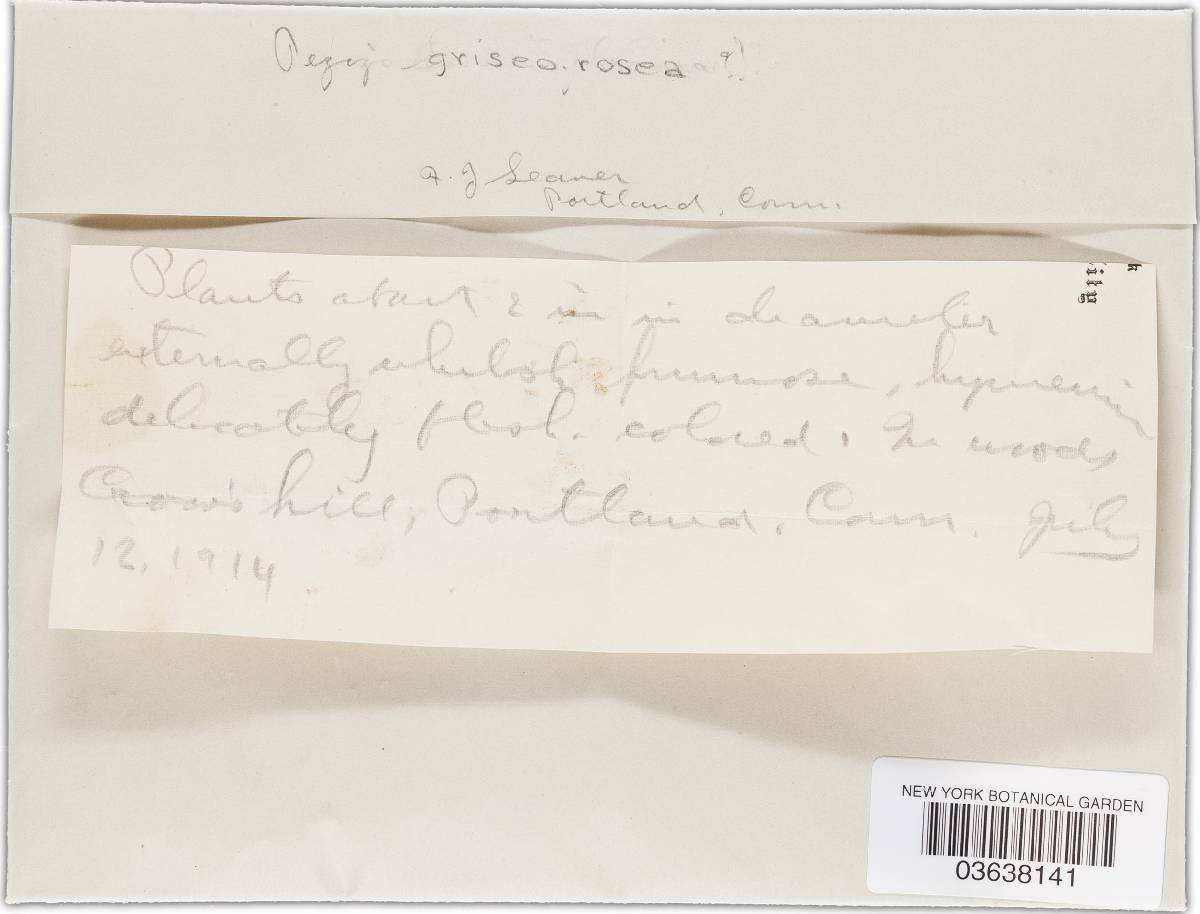 Peziza griseo-rosea ?
F. J. Seaver
Portland, Conn.
k
City
Plants about 2 in in diameter
externally whitish pruinose, hymenium
delicately flesh-colored. In woods
Crow's hill, Portland, Conn. July
12, 1914
NEW YORK BOTANICAL GARDEN
03638141